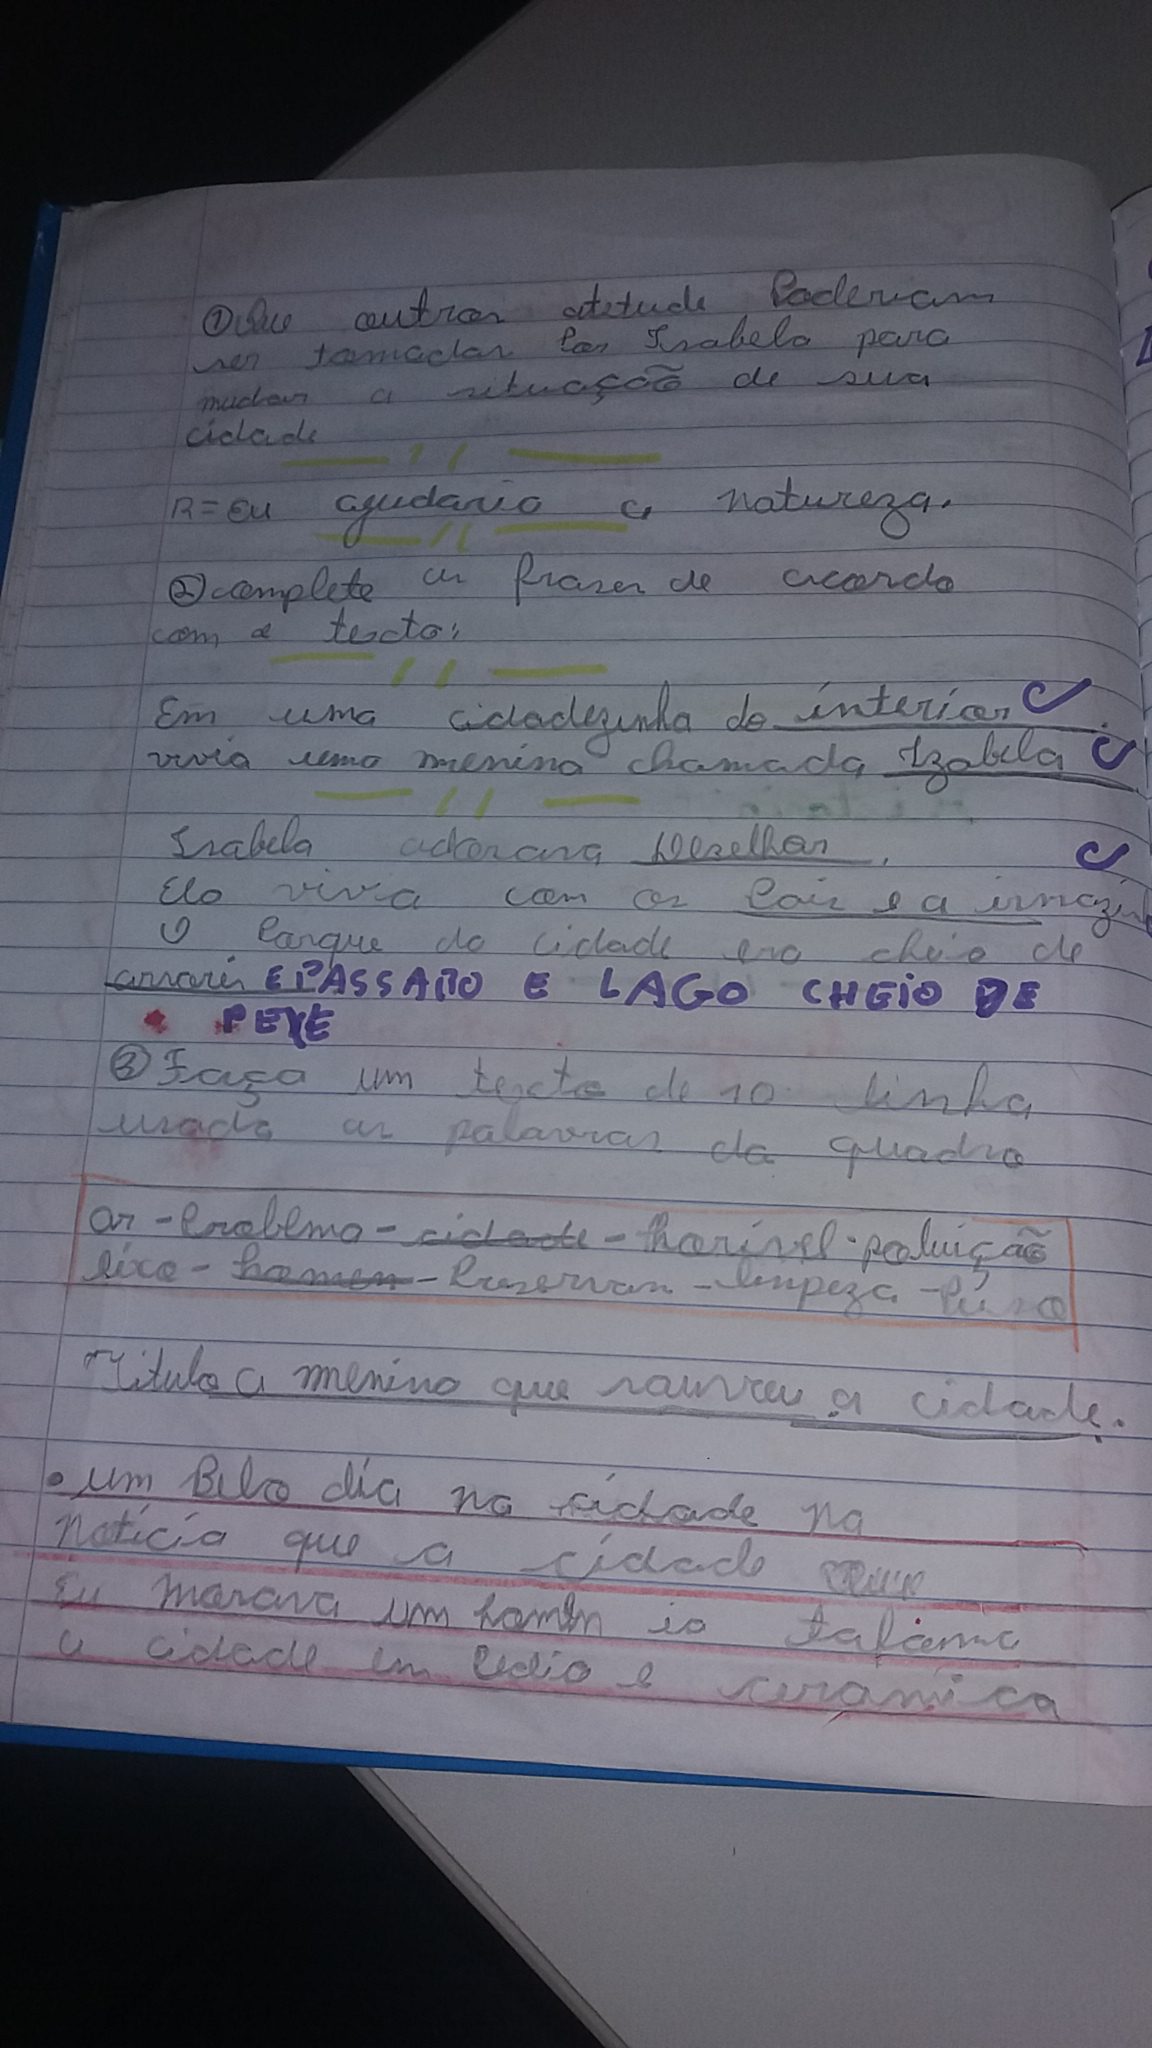 ① Que outras atetude Poderiam
ser tomadas Por Isabela para
mudar a situação de sua
cidade
R= Eu ajudaria a natureza.
② complete as frases de acordo
com o texto:
Em uma cidadezinha do interior
vivia uma menina chamada Izabela
Isabela adorava
Ela vivia com os Pais e a irmazinh
O Parque da cidade era cheio de
EPASSARO E LAGO CHEIO DE
PEXE
③ Faça um texto de 10 linha
usado as palavras da quadro
ar - Problema - cidade - horivel - poluição
lixo - homen - Preservar - limpeza - Púro
Titulo a menina que sauvou a cidade.
um Belo dia na cidade na
noticía que a cídade
Eu morava um homem
a cidade em Pedio e ceramica